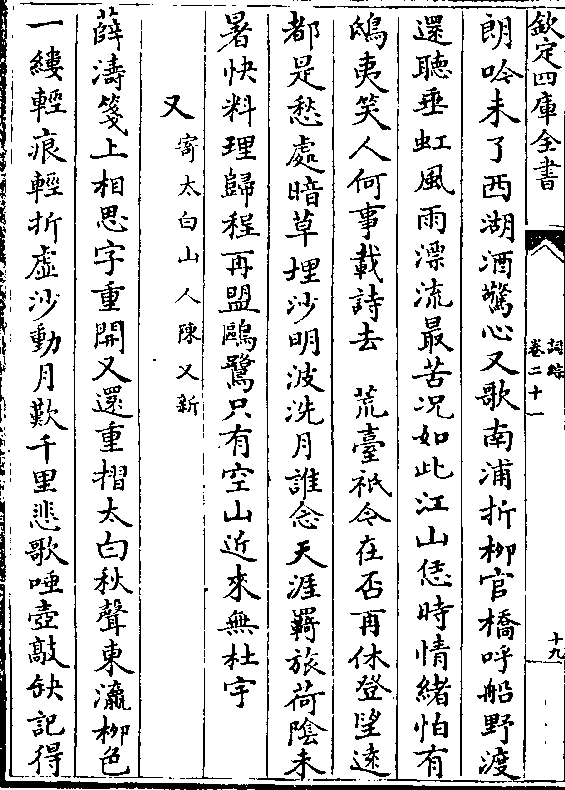 欽定四庫全書
詞綜
卷二十一
十九
朗吟未了西湖酒驚心又歌南浦折栁官橋呼船野渡
還聽垂虹風雨漂流最苦况如此江山恁時情緒怕有
鴟夷笑人何事載詩去　荒臺祇令在否再休登望逺
都是愁處暗草埋沙明波洗月誰念天涯羇旅荷陰未
暑快料理歸程再盟鷗鷺只有空山近來無杜宇
又寄太白山人陳又新
薛濤箋上相思字重開又還重摺太白秋聲東瀛栁色
一縷輕痕輕折虚沙動月歎千里悲歌唾壺敲缺記得